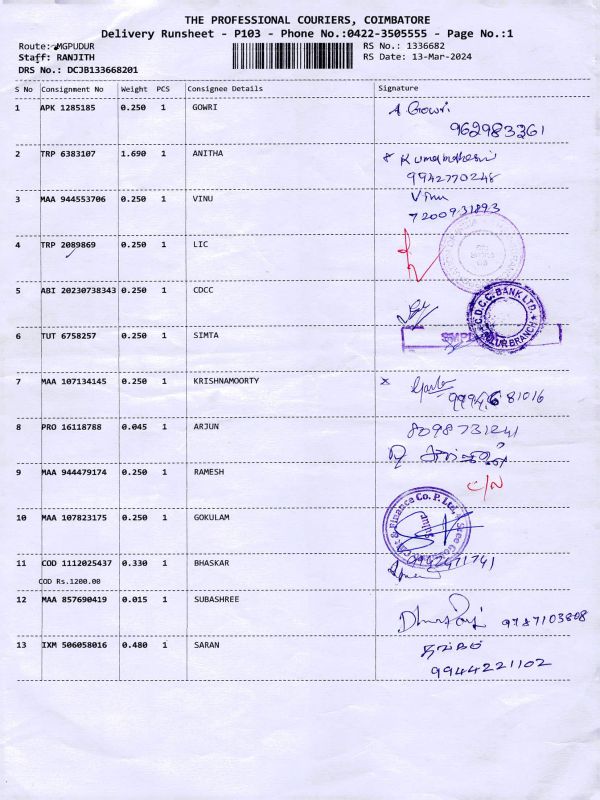 THE PROFESSIONAL COURIERS, COIMBATORE
Delivery Runsheet - P103 - Phone No.:0422-3505555 - Page No.:1
Route: MGPUDUR
RS No.: 1336682
Staff: RANJITH
RS Date: 13-Mar-2024
DRS No.: DCJB133668201
S No Consignment No Weight PCS Consignee Details Signature
1 APK 1285185 0.250 1 GOWRI A Gowri
962983361
2 TRP 6383107 1.690 1 ANITHA
9942770248
3 MAA 944553706 0.250 1 VINU Vinu
7200931893
4 TRP 2089869 0.250 1 LIC
5 ABI 20230738343 0.250 1 CDCC
C.D.C.C. BANK LTD.
BRANCH
6 TUT 6758257 0.250 1 SIMTA
7 MAA 107134145 0.250 1 KRISHNAMOORTY x
81016
8 PRO 16118788 0.045 1 ARJUN 8098731241
9 MAA 944479174 0.250 1 RAMESH C/N
10 MAA 107823175 0.250 1 GOKULAM
& Finance Co. P. Ltd.
11 COD 1112025437 0.330 1 BHASKAR
COD Rs.1200.00
12 MAA 857690419 0.015 1 SUBASHREE
9787103808
13 IXM 506058016 0.480 1 SARAN
9944221102